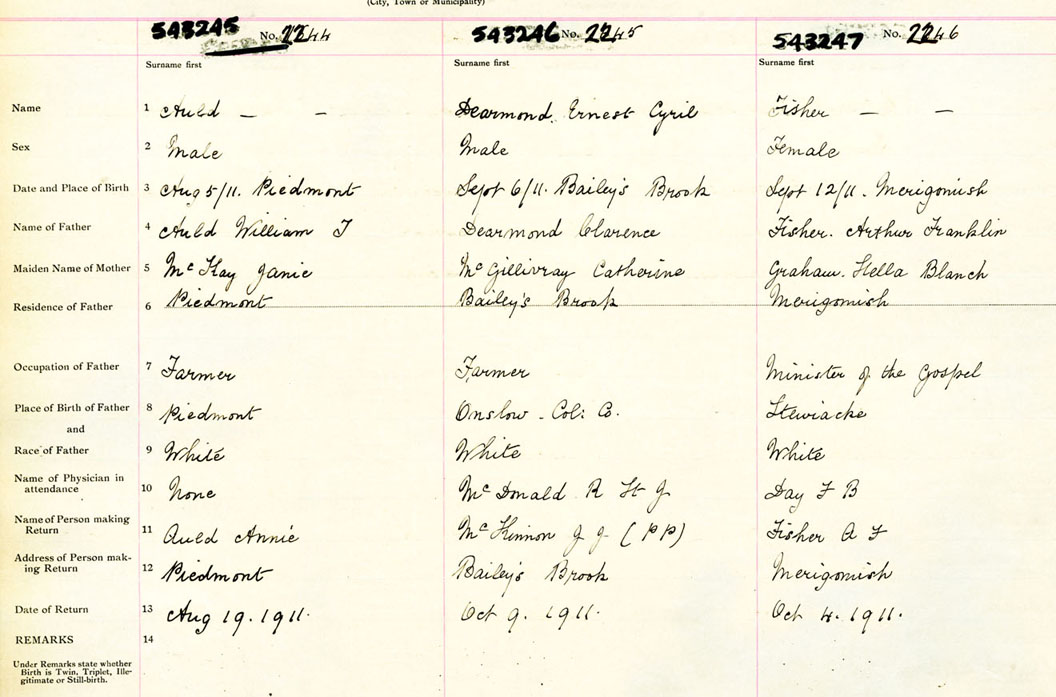 (City, Town or Municipality)
543245 No. 2244 543246 No. 2245 543247 No. 2246
Surname first Surname first Surname first
Name 1 Auld — — Dearmond. Ernest Cyril Fisher — —
Sex 2 Male Male Female
Date and Place of Birth 3 Aug 5/11. Piedmont Sept 6/11. Bailey's Brook Sept 12/11. Merigomish
Name of Father 4 Auld William J Dearmond Clarence Fisher. Arthur Franklin
Maiden Name of Mother 5 McKay Janie McGillivray Catherine Graham. Stella Blanch
Residence of Father 6 Piedmont Bailey's Brook Merigomish
Occupation of Father 7 Farmer Farmer Minister of the Gospel
Place of Birth of Father 8 Piedmont Onslow - Col: Co. Stewiacke
and
Race of Father 9 White White White
Name of Physician in
attendance 10 None McDonald R St J Day F B
Name of Person making
Return 11 Auld Annie McKinnon J J (PP) Fisher A F
Address of Person mak-
ing Return 12 Piedmont Bailey's Brook Merigomish
Date of Return 13 Aug 19. 1911. Oct 9. 1911. Oct 4. 1911.
REMARKS 14
Under Remarks state whether
Birth is Twin, Triplet, Ille-
gitimate or Still-birth.